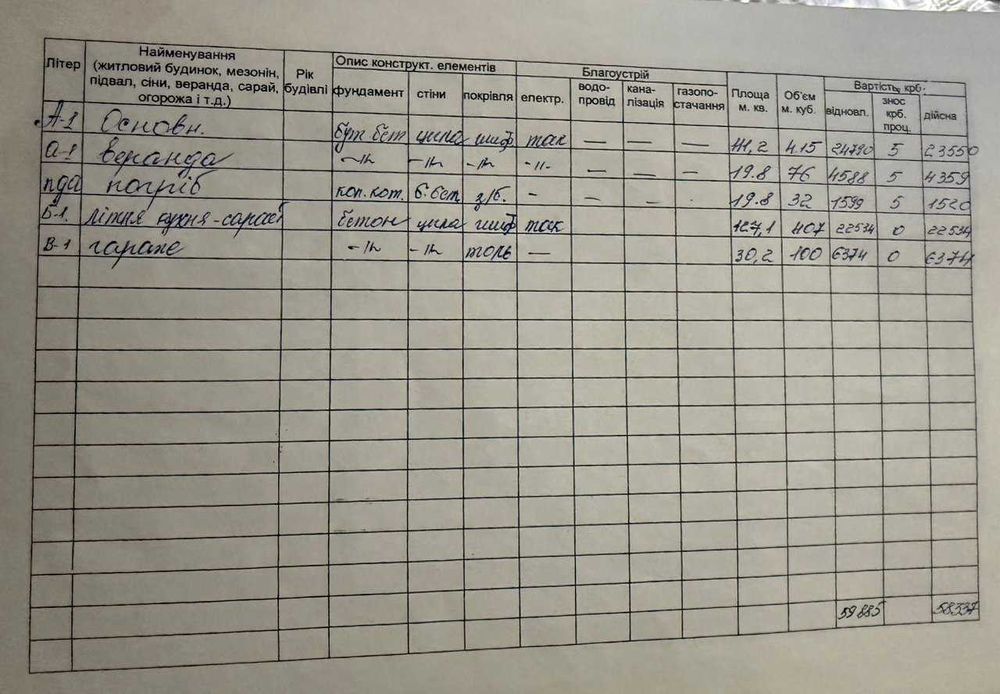 Літер Найменування (житловий будинок, мезонін, підвал, сіни, веранда, сарай, огорожа і т.д.) Рік будівлі Опис конструкт. елементів Благоустрій Площа м. кв. Об'єм м. куб. Вартість, крб.
фундамент стіни покрівля електр. водо-провід кана-лізація газопо-стачання відновл. знос крб. проц. дійсна
А-1 Основн. бут. бет цегла шиф. так — — — 415 24790 5 23550
а-1 веранда -//- -//- -//- -//- — — - 19.8 76 4588 5 4359
пда погріб коп. кот. б.бет з/б. - - - . 19.8 32 1599 5 1520
Б-1 літня кухня-сарай бетон цегла шиф так 127,1 407 22534 0 22534
В-1 гараж -//- -//- толь — 30,2 100 6374 0 6374
59885 58337